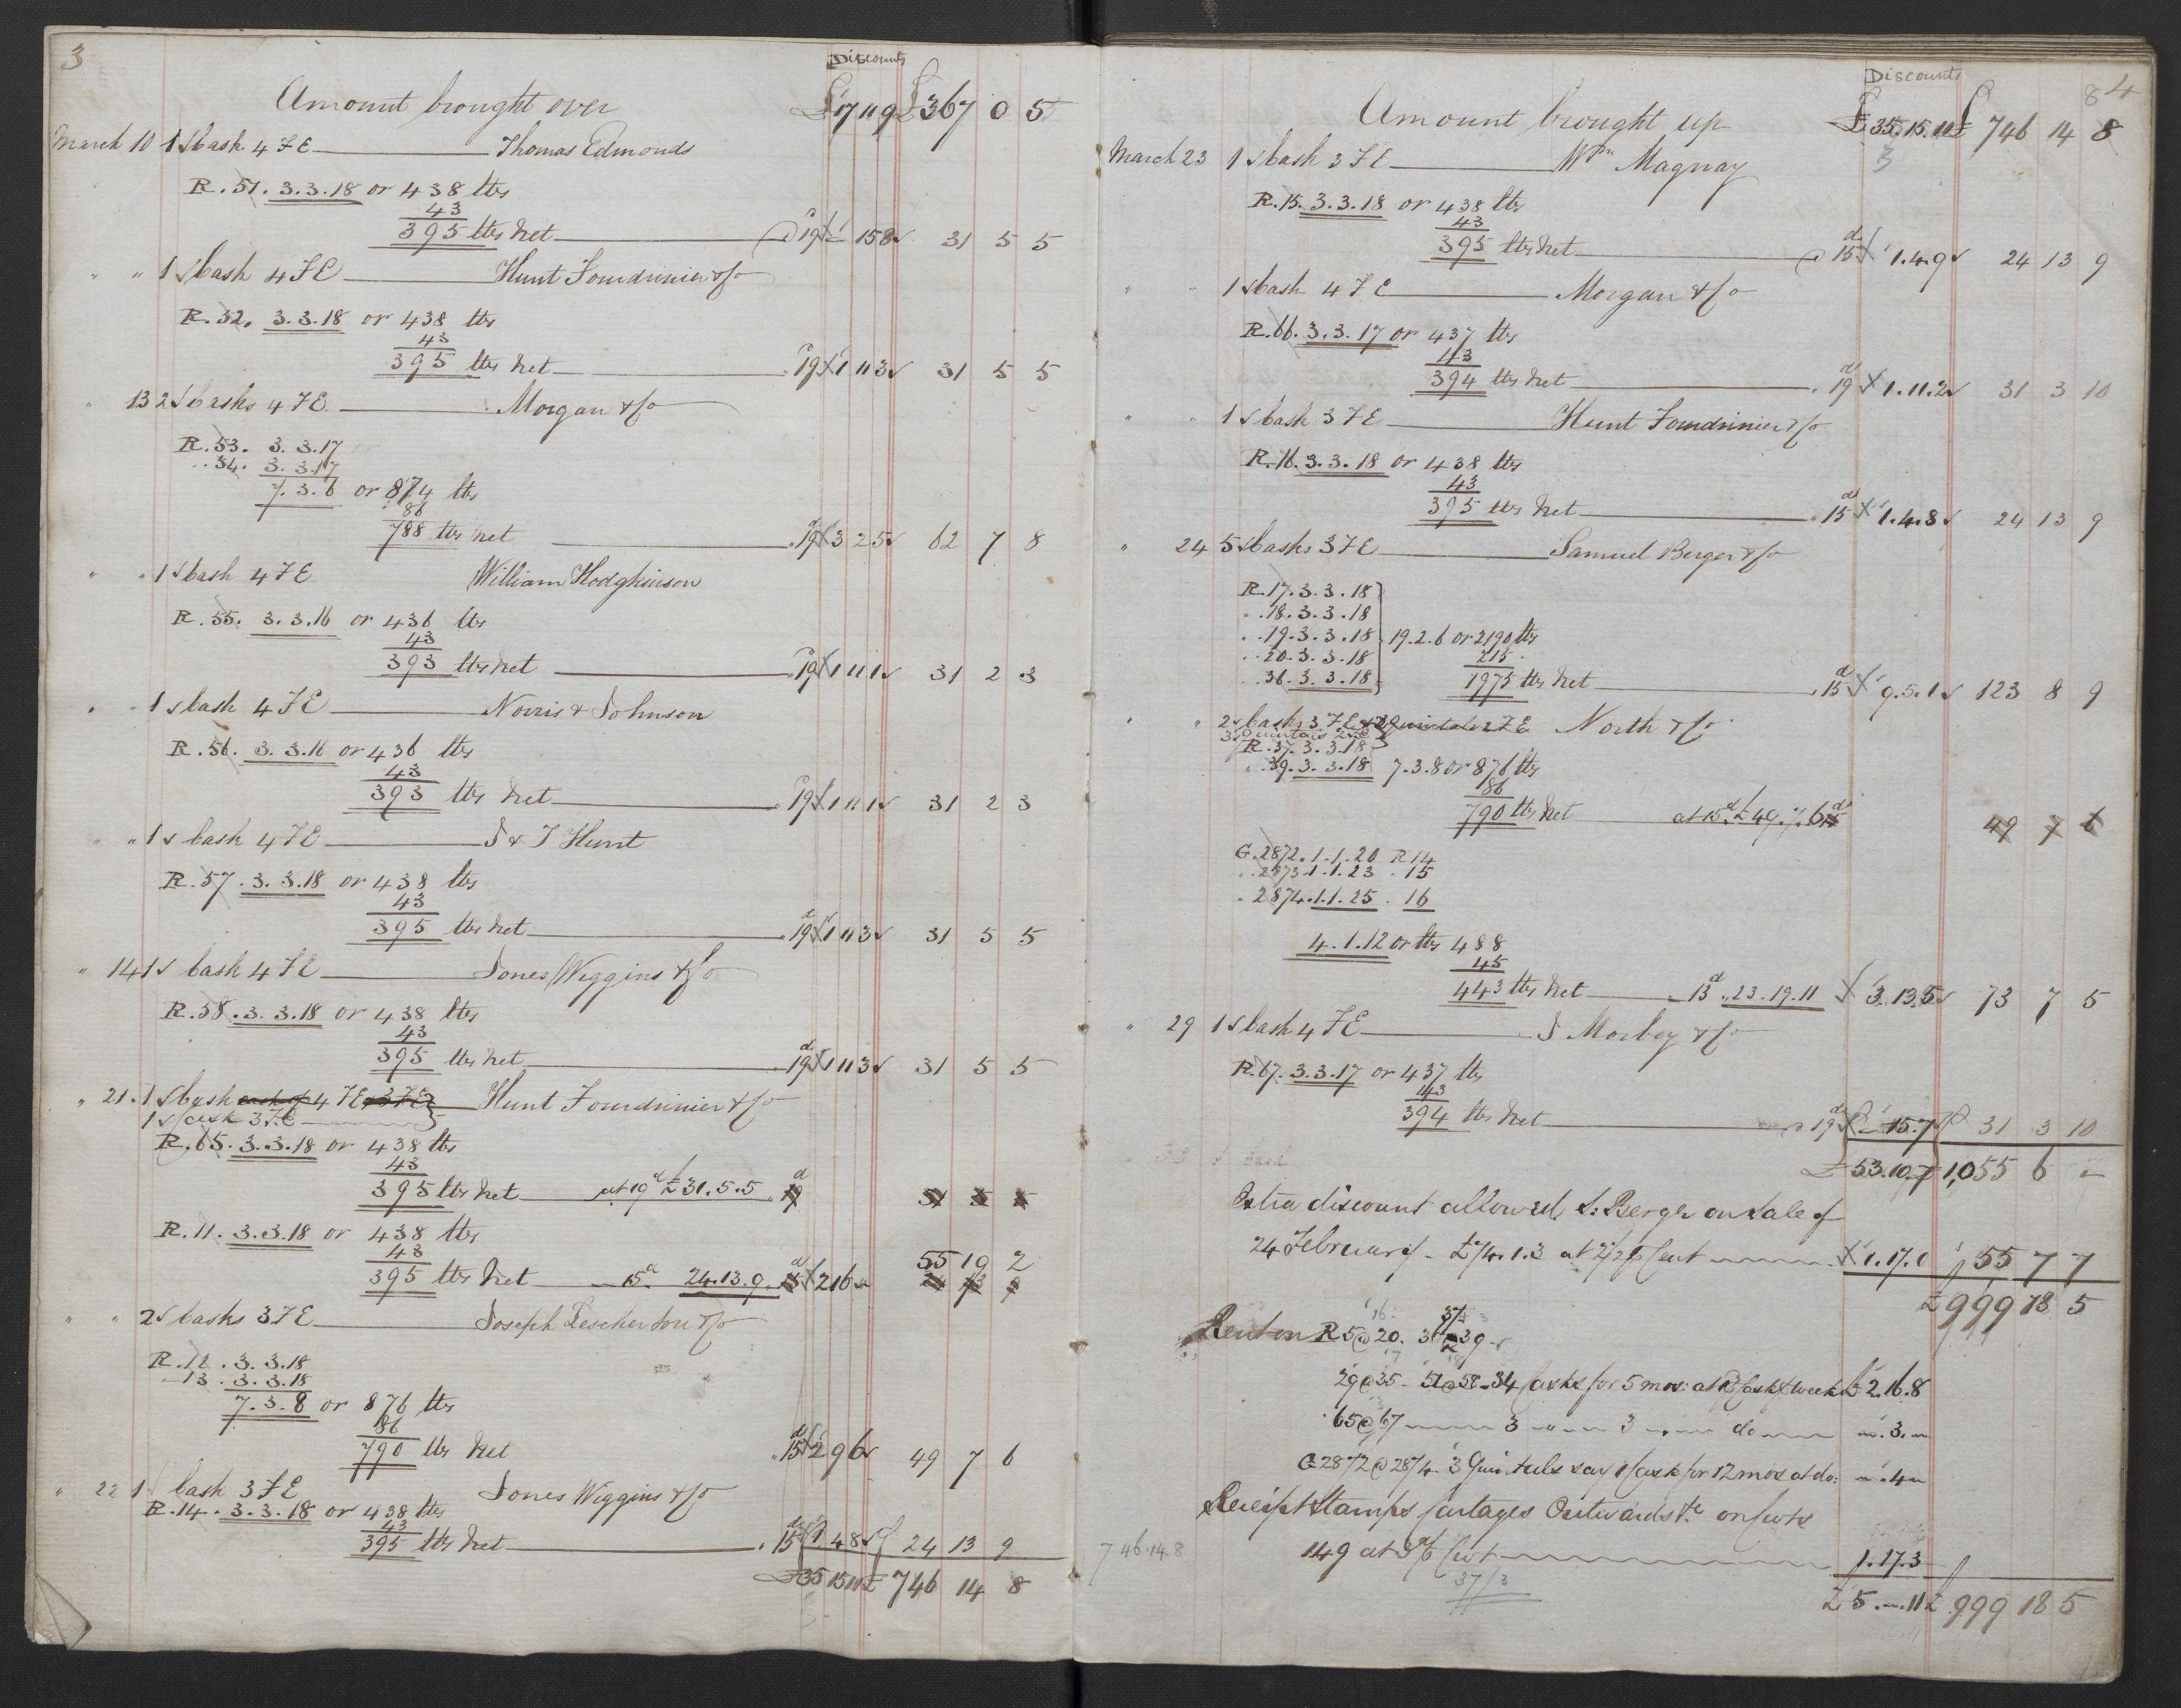 3
Discounts
Amount brought over £17 11 9 £367 0 5
March 10 1 Cask 4 FE Thomas Edmonds
R. 51. 3.3.18 or 438 lbs
43
395 lbs Net @ 19 15 8 31 5 5
" " 1 Cask 4 FE Hunt Fourdrinier & Co
R. 52. 3.3.18 or 438 lbs
43
395 lbs Net 19 1 11 3 31 5 5
" 13 2 Casks 4 FE Morgan & Co
R. 53. 3.3.17
" 54. 3.3.17
7.3.6 or 874 lbs
86
788 lbs Net 19 3 2 5 62 7 8
" " 1 Cask 4 FE William Hodgkinson
R. 55. 3.3.16 or 436 lbs
43
393 lbs Net 19 1 11 1 31 2 3
" " 1 Cask 4 FE Norris & Johnson
R. 56. 3.3.16 or 436 lbs
43
393 lbs Net 19 1 11 1 31 2 3
" " 1 Cask 4 FE J & T Hunt
R. 57. 3.3.18 or 438 lbs
43
395 lbs Net 19d 1 11 3 31 5 5
" 14 1 Cask 4 FE Jones Wiggins & Co
R. 58. 3.3.18 or 438 lbs
43
395 lbs Net 19d 1 11 3 31 5 5
" 21. 1 Cask 4 FE & 3 FE Hunt Fourdrinier & Co
1 Cask 3 FE
R. 65. 3.3.18 or 438 lbs
43
395 lbs Net at 19d £31.5.5 19d 31 5 5
R. 11. 3.3.18 or 438 lbs
43 55 19 2
395 lbs Net 15d 24.13.9 15d 2 16 " 24 13 9
" " 2 Casks 3 FE Joseph Lescher Son & Co
R. 12. 3.3.18
" 13. 3.3.18
7.3.8 or 876 lbs
86
790 lbs Net 15d 2 9 6 49 7 6
" 22 1 Cask 3 FE Jones Wiggins & Co
R. 14. 3.3.18 or 438 lbs
43
395 lbs Net 15d 1 4 8 24 13 9
£35 15 11 £746 14 8
Discounts
8 4
Amount brought up £35.15.11 £746 14 8
3
March 23 1 Cask 3 FE Wm Magnay
R. 15. 3.3.18 or 438 lbs
43
395 lbs Net @ 15d 1.4.9 24 13 9
" " 1 Cask 4 FE Morgan & Co
R. 66. 3.3.17 or 437 lbs
43
394 lbs Net 19d 1.11.2 31 3 10
" " 1 Cask 3 FE Hunt Fourdrinier & Co
R. 16. 3.3.18 or 438 lbs
43
395 lbs Net 15d 1.4.8 24 13 9
" 24 5 Casks 3 FE Samuel Berger & Co
R. 17. 3.3.18
" 18. 3.3.18
" 19. 3.3.18 19.2.6 or 2190 lbs
" 20. 3.3.18 215
" 36. 3.3.18 1975 lbs Net 15d 9.5.1 123 8 9
" " 2 Casks 3 FE & 3 Quintals 2 FE North & Co
3 Quintals 2 FE
R. 37. 3.3.18
" 39. 3.3.18 7.3.8 or 876 lbs
86
790 lbs Net at 15d £49.7.6 15d 49 7 6
G. 2872. 1.1.20 R 14
" 2873. 1.1.23 " 15
" 2874. 1.1.25 " 16
4.1.12 or lbs 488
45
443 lbs Net 13d 23.19.11 3.13.5 73 7 5
" 29 1 Cask 4 FE J Morbey & Co
R. 67. 3.3.17 or 437 lbs
43
394 lbs Net 19d 15.7 31 3 10
£53.10.7 1,055 6 "
Extra discount allowed S: Berger on Sale of
24 February £74.1.3 at 2 1/2 p Cent 1.17.0 55 7 7
£999 18 5
Rent on R 5 @ 20. 36 37 39
29 @ 35 51 @ 58 34 Casks for 5 mos: at Cask week £2.16.8
65 @ 67 3 " 3 " do " .3. "
G 2872 @ 2874. 3 Quintals say 1 Cask for 12 mos at do: " .4 "
Receipt Stamps Cartages Outwards &c on Cwts
746.14.8
149 at 3d p Cwt 1.17.3
37/3
£5. " .11 £999 18 5